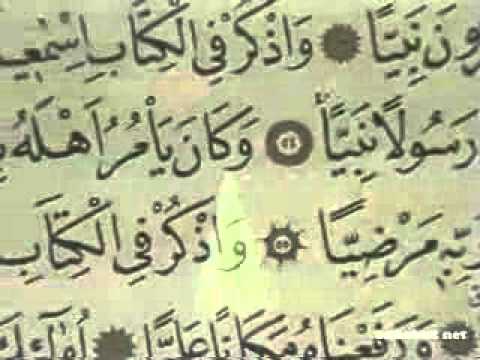 رُونَ نَبِيًّا وَاذْكُرْ فِي الْكِتَابِ إِسْمَعِي
رَسُولًا نَبِيًّا ٥٤ وَكَانَ يَأْمُرُ أَهْلَهُ
رَبِّهِ مَرْضِيًّا ٥٥ وَاذْكُرْ فِي الْكِتَابِ
وَرَفَعْنَاهُ مَكَانًا عَلِيًّا أُولَٰئِكَ
net